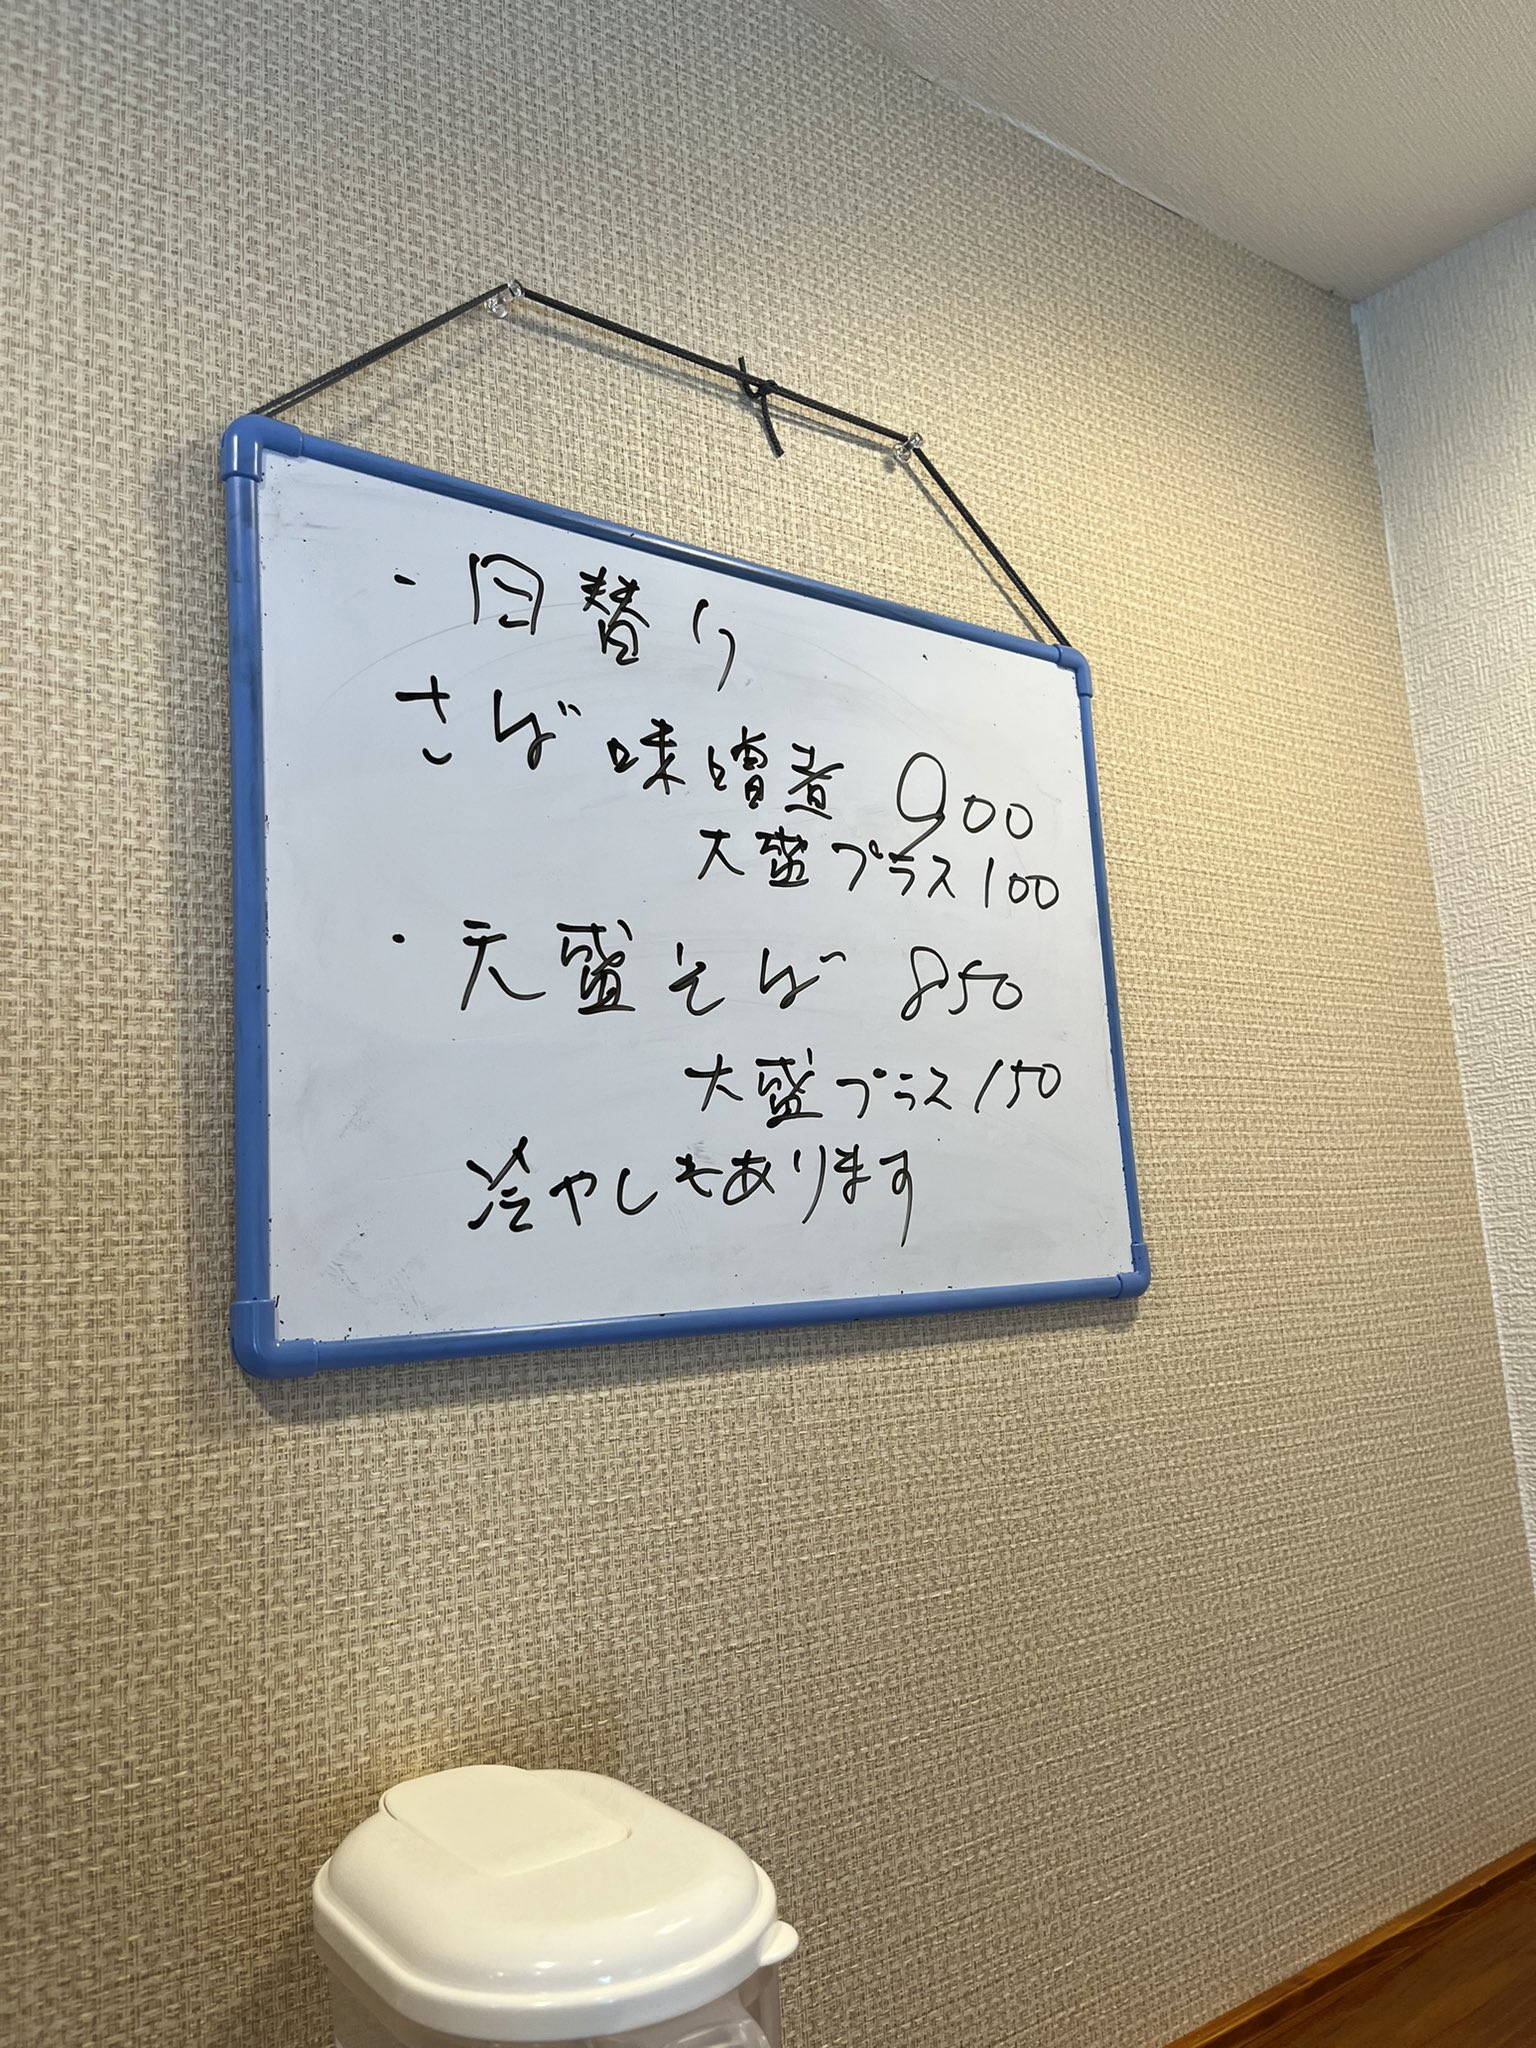 ・日替り
さば味噌煮 900
大盛プラス100
・天盛そば 850
大盛プラス150
冷やしもあります